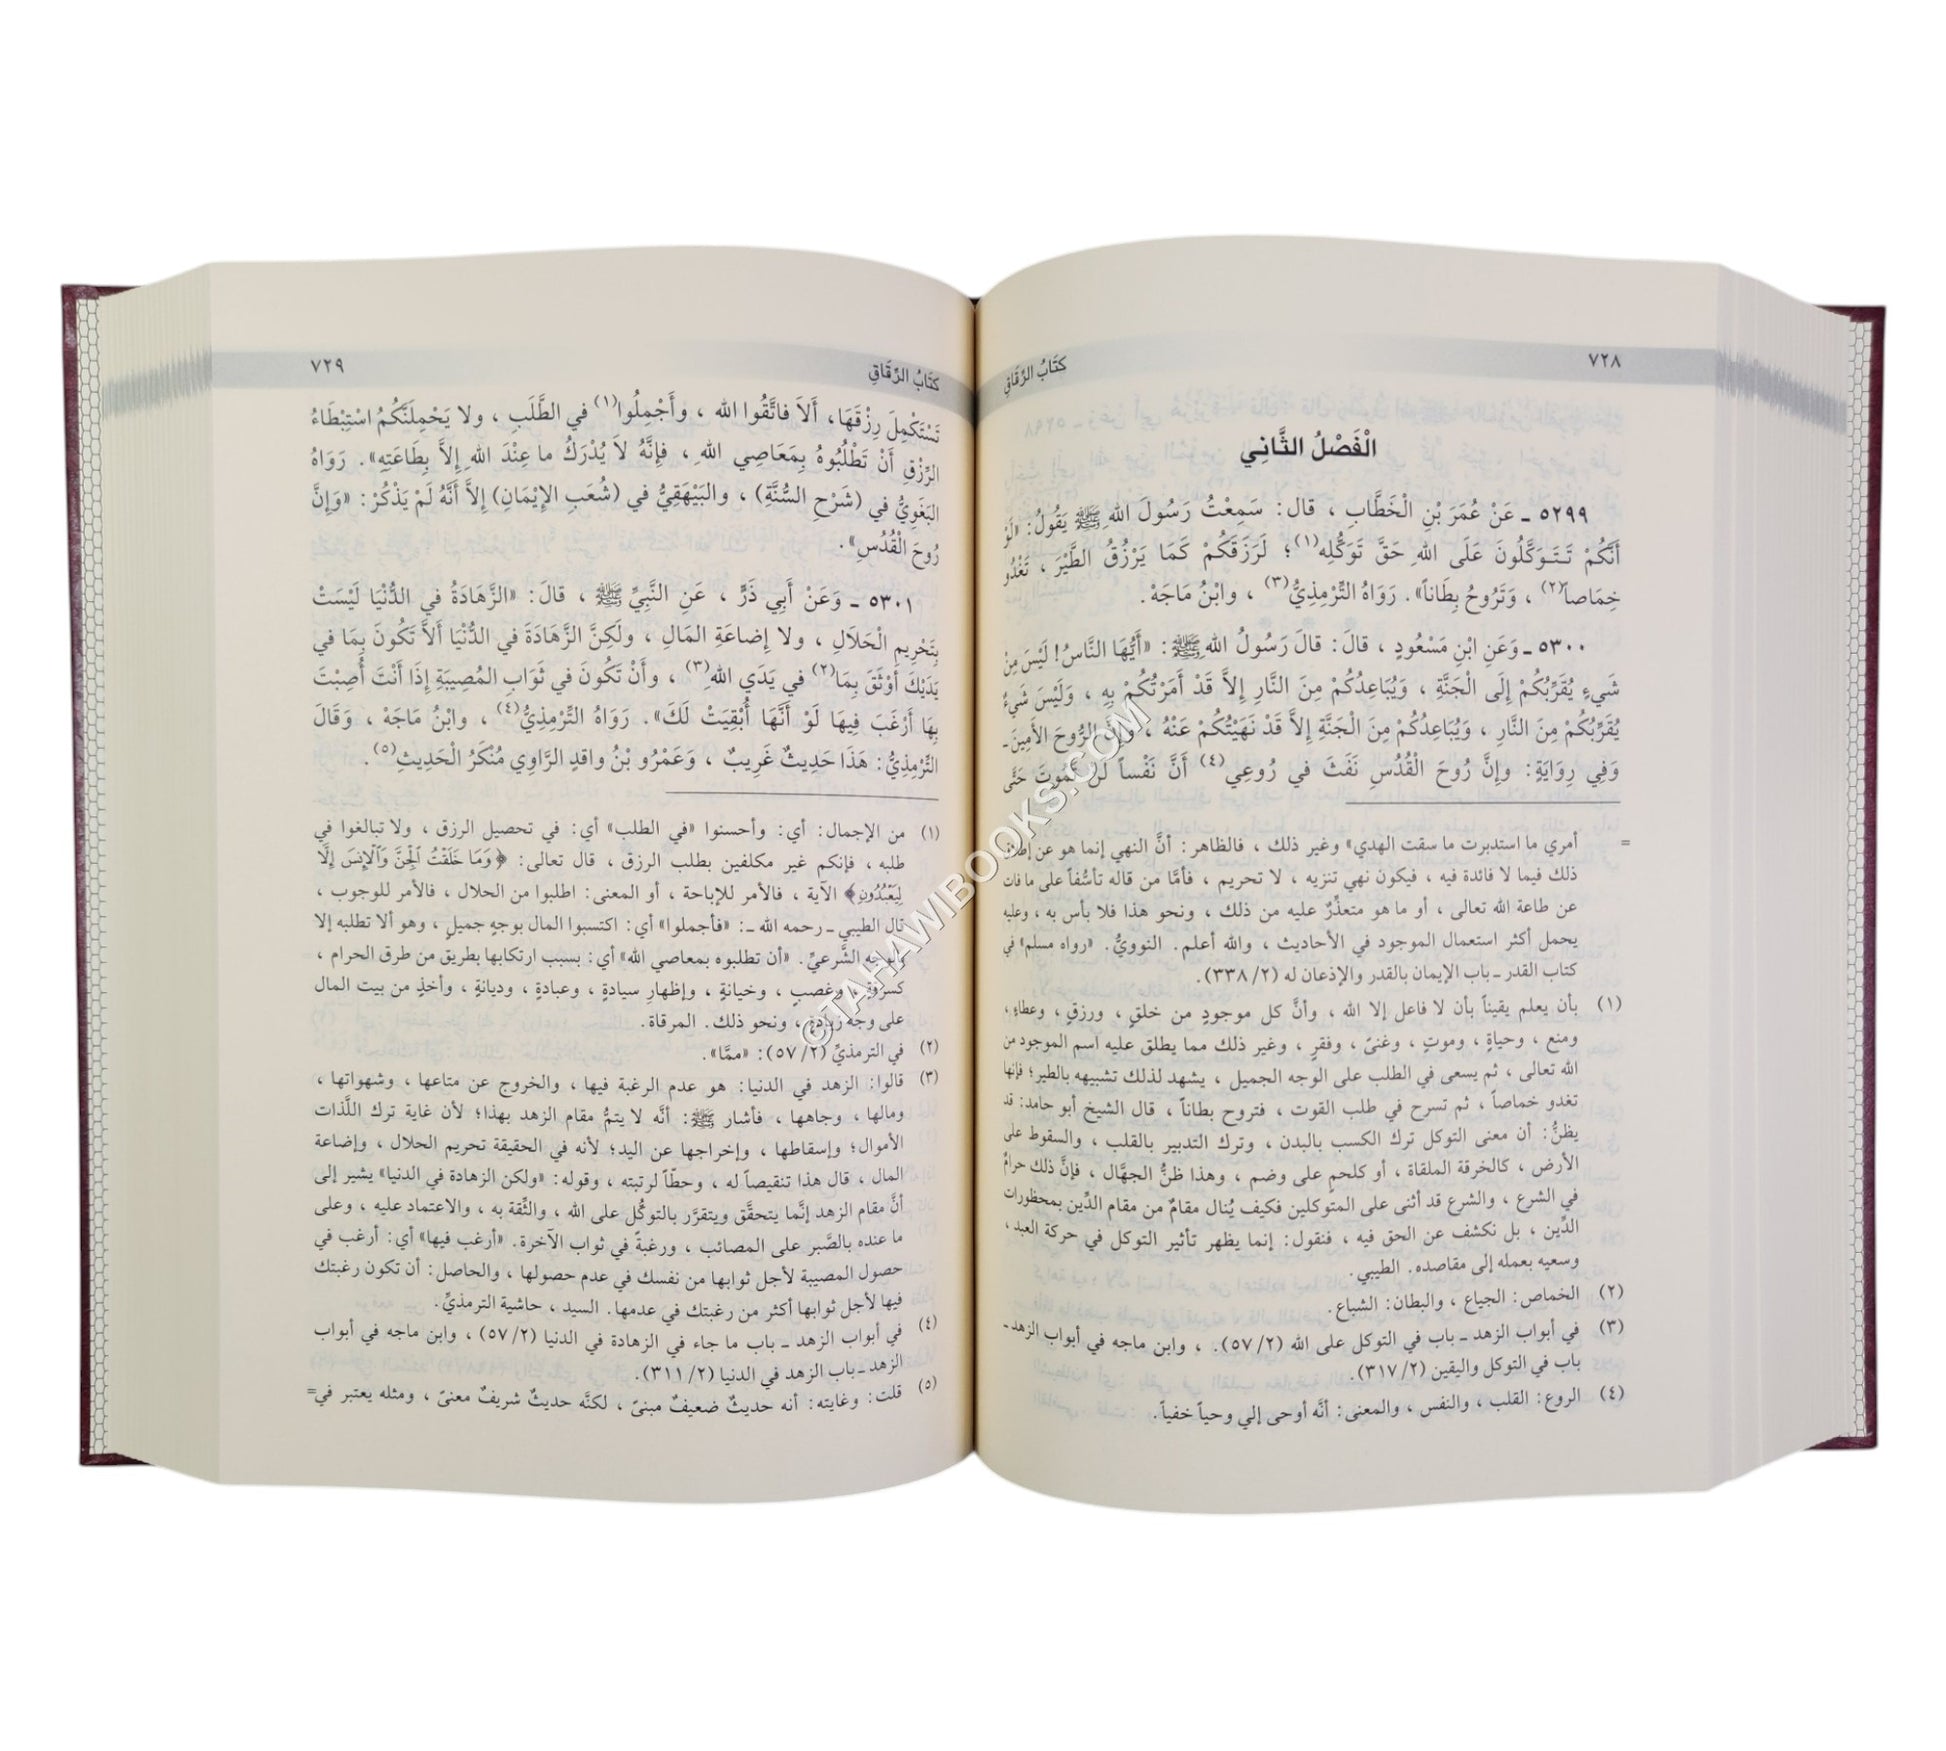 ٧٢٨
كِتَابُ الرِّقَاقِ
الْفَصْلُ الثَّانِي
٥٢٩٩ ـ عَنْ عُمَرَ بْنِ الْخَطَّابِ ، قال: سَمِعْتُ رَسُولَ اللهِ ﷺ يَقُولُ: «لَوْ
أَنَّكُمْ تَتَوَكَّلُونَ عَلَى اللهِ حَقَّ تَوَكُّلِهِ(١)؛ لَرَزَقَكُمْ كَمَا يَرْزُقُ الطَّيْرَ ، تَغْدُو
خِمَاصاً(٢) ، وَتَرُوحُ بِطَاناً». رَوَاهُ التِّرْمِذِيُّ(٣) ، وابْنُ مَاجَهْ.
٥٣٠٠ ـ وَعَنِ ابْنِ مَسْعُودٍ ، قالَ: قالَ رَسُولُ اللهِ ﷺ: «أَيُّهَا النَّاسُ! لَيْسَ مِنْ
شَيءٍ يُقَرِّبُكُمْ إِلَى الْجَنَّةِ ، وَيُبَاعِدُكُمْ مِنَ النَّارِ إِلاَّ قَدْ أَمَرْتُكُمْ بِهِ ، وَلَيْسَ شَيءٌ
يُقَرِّبُكُمْ مِنَ النَّارِ ، وَيُبَاعِدُكُمْ مِنَ الْجَنَّةِ إِلاَّ قَدْ نَهَيْتُكُمْ عَنْهُ ، وَإِنَّ الرُّوحَ الأَمِينَ ـ
وَفِي رِوَايَةٍ: وإِنَّ رُوحَ الْقُدُسِ نَفَثَ في رُوعِي(٤) أَنَّ نَفْساً لَنْ تَمُوتَ حَتَّى
= أمري ما استدبرت ما سقت الهدي» وغير ذلك ، فالظاهر: أنَّ النهي إنما هو عن إطلاق
ذلك فيما لا فائدة فيه ، فيكون نهي تنزيه ، لا تحريم ، فأمَّا من قاله تأسُّفاً على ما فات
عن طاعة الله تعالى ، أو ما هو متعذِّرٌ عليه من ذلك ، ونحو هذا فلا بأس به ، وعليه
يحمل أكثر استعمال الموجود في الأحاديث ، والله أعلم. النوويُّ. «رواه مسلم» في
كتاب القدر ـ باب الإيمان بالقدر والإذعان له (٢/٣٣٨).
(١) بأن يعلم يقيناً بأن لا فاعل إلا الله ، وأنَّ كل موجودٍ من خلقٍ ، ورزقٍ ، وعطاءٍ ،
ومنع ، وحياةٍ ، وموتٍ ، وغنىً ، وفقرٍ ، وغير ذلك مما يطلق عليه اسم الموجود من
الله تعالى ، ثم يسعى في الطلب على الوجه الجميل ، يشهد لذلك تشبيهه بالطير؛ فإنها
تغدو خماصاً ، ثم تسرح في طلب القوت ، فتروح بطاناً ، قال الشيخ أبو حامد: قد
يظنُّ: أن معنى التوكل ترك الكسب بالبدن ، وترك التدبير بالقلب ، والسقوط على
الأرض ، كالخرقة الملقاة ، أو كلحمٍ على وضم ، وهذا ظنُّ الجهَّال ، فإنَّ ذلك حرامٌ
في الشرع ، والشرع قد أثنى على المتوكلين فكيف يُنال مقامٌ من مقام الدِّين بمحظورات
الدِّين ، بل نكشف عن الحق فيه ، فنقول: إنما يظهر تأثير التوكل في حركة العبد ،
وسعيه بعمله إلى مقاصده. الطيبي.
(٢) الخماص: الجياع ، والبطان: الشباع.
(٣) في أبواب الزهد ـ باب في التوكل على الله (٢/٥٧). ، وابن ماجه في أبواب الزهد ـ
باب في التوكل واليقين (٢/٣١٧).
(٤) الروع: القلب ، والنفس ، والمعنى: أنَّه أوحى إلي وحياً خفياً.
كِتَابُ الرِّقَاقِ
٧٢٩
تَسْتَكْمِلَ رِزْقَهَا، أَلاَ فاتَّقُوا الله ، وأَجْمِلُوا(١) في الطَّلَبِ ، ولا يَحْمِلَنَّكُمُ اسْتِبْطَاءُ
الرِّزْقِ أَنْ تَطْلُبُوهُ بِمَعَاصِي اللهِ ، فإِنَّهُ لَا يُدْرَكُ ما عِنْدَ اللهِ إِلاَّ بِطَاعَتِهِ». رَوَاهُ
البَغَوِيُّ في (شَرْحِ السُّنَّةِ) ، والبَيْهَقِيُّ في (شُعَبِ الإِيْمَانِ) إِلاَّ أَنَّهُ لَمْ يَذْكُرْ: «وَإِنَّ
رُوحَ الْقُدُسِ».
٥٣٠١ ـ وَعَنْ أَبِي ذَرٍّ ، عَنِ النَّبِيِّ ﷺ ، قالَ: «الزَّهَادَةُ في الدُّنْيَا لَيْسَتْ
بِتَحْرِيمِ الْحَلَالِ ، ولا إِضاعَةِ المَالِ ، ولكِنَّ الزَّهَادَةَ في الدُّنْيَا أَلاَّ تَكُونَ بِمَا في
يَدَيْكَ أَوْثَقَ بِمَا(٢) في يَدَي اللهِ(٣) ، وأَنْ تَكُونَ في ثَوَابِ المُصِيبَةِ إِذَا أَنْتَ أُصِبْتَ
بِهَا أَرْغَبَ فِيهَا لَوْ أَنَّهَا أُبْقِيَتْ لَكَ». رَوَاهُ التِّرْمِذِيُّ(٤) ، وابْنُ مَاجَهْ ، وَقَالَ
التِّرْمِذِيُّ: هَذَا حَدِيثٌ غَرِيبٌ ، وَعَمْرُو بْنُ واقدٍ الرَّاوِي مُنْكَرُ الْحَدِيثِ(٥).
(١) من الإجمال: أي: وأحسنوا «في الطلب» أي: في تحصيل الرزق ، ولا تبالغوا في
طلبه ، فإنكم غير مكلفين بطلب الرزق ، قال تعالى: ﴿وَمَا خَلَقْتُ ٱلْجِنَّ وَٱلْإِنسَ إِلَّا
لِيَعْبُدُونِ﴾ الآية ، فالأمر للإباحة ، أو المعنى: اطلبوا من الحلال ، فالأمر للوجوب ،
قال الطيبي ـ رحمه الله ـ: «فأجملوا» أي: اكتسبوا المال بوجهٍ جميلٍ ، وهو ألا تطلبه إلا
بالوجه الشَّرعيِّ. «أن تطلبوه بمعاصي الله» أي: بسبب ارتكابها بطريق من طرق الحرام ،
كسرقةٍ ، وغصبٍ ، وخيانةٍ ، وإظهارِ سيادةٍ ، وعبادةٍ ، وديانةٍ ، وأخذٍ من بيت المال
على وجه زيادةٍ ، ونحو ذلك. المرقاة.
(٢) في الترمذيِّ (٢/٥٧): «ممَّا».
(٣) قالوا: الزهد في الدنيا: هو عدم الرغبة فيها ، والخروج عن متاعها ، وشهواتها ،
ومالها ، وجاهها ، فأشار ﷺ: أنَّه لا يتمُّ مقام الزهد بهذا؛ لأن غاية ترك اللَّذات
الأموال؛ وإسقاطها ، وإخراجها عن اليد؛ لأنه في الحقيقة تحريم الحلال ، وإضاعة
المال ، قال هذا تنقيصاً له ، وحطّاً لرتبته ، وقوله: «ولكن الزهادة في الدنيا» يشير إلى
أنَّ مقام الزهد إنَّما يتحقَّق ويتقرَّر بالتوكُّل على الله ، والثِّقة به ، والاعتماد عليه ، وعلى
ما عنده بالصَّبر على المصائب ، ورغبةً في ثواب الآخرة. «أرغب فيها» أي: أرغب في
حصول المصيبة لأجل ثوابها من نفسك في عدم حصولها ، والحاصل: أن تكون رغبتك
فيها لأجل ثوابها أكثر من رغبتك في عدمها. السيد ، حاشية الترمذيِّ.
(٤) في أبواب الزهد ـ باب ما جاء في الزهادة في الدنيا (٢/٥٧) ، وابن ماجه في أبواب
الزهد ـ باب الزهد في الدنيا (٢/٣١١).
(٥) قلت: وغايته: أنه حديثٌ ضعيفٌ مبنىً ، لكنَّه حديثٌ شريفٌ معنىً ، ومثله يعتبر في=
©TAHAWIBOOKS.COM